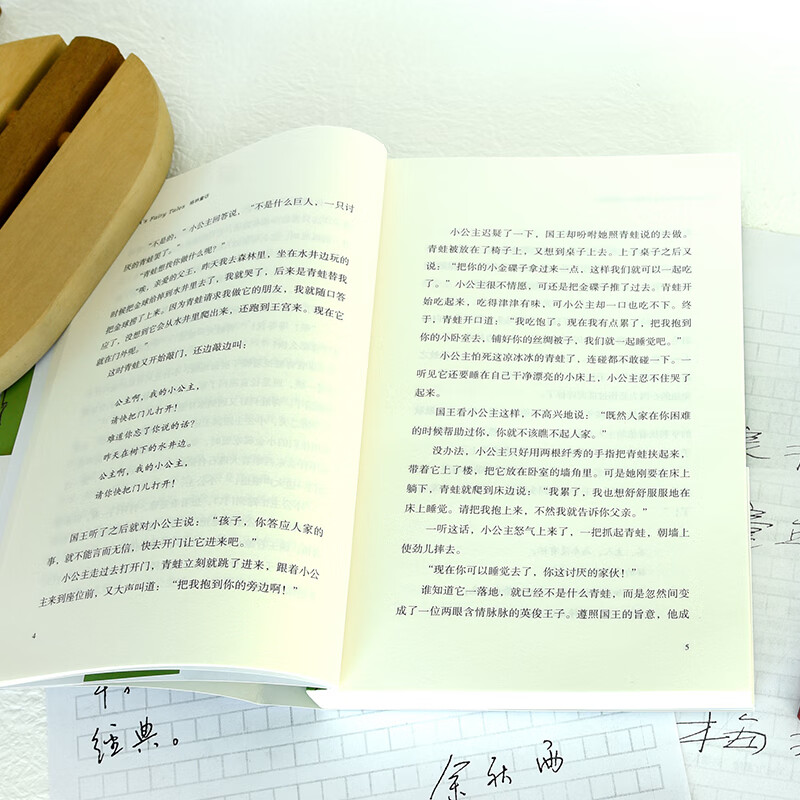 's Fairy Tales 格林童话
“不是的，”小公主回答说，“不是什么巨人，一只讨
厌的青蛙罢了。”
“青蛙想找你做什么呢？”
“唉，亲爱的父王，昨天我去森林里，坐在水井边玩的
时候把金球给掉到水井里去了，我就哭了，后来是青蛙替我
把金球捞了上来。因为青蛙请求我做它的朋友，我就随口答
应了，没想到它会从水井里爬出来，还跑到王宫来。现在它
就在门外呢。”
这时青蛙又开始敲门，还边敲边叫：
公主啊，我的小公主，
请快把门儿打开！
难道你忘了你说的话？
昨天在树下的水井边。
公主啊，我的小公主，
请你快把门儿打开！
国王听了之后就对小公主说：“孩子，你答应人家的
事，就不能言而无信，快去开门让它进来吧。”
小公主走过去打开门，青蛙立刻就跳了进来，跟着小公
主来到座位前，又大声叫道：“把我抱到你的旁边啊！”
4
小公主迟疑了一下，国王却吩咐她照青蛙说的去做。
青蛙被放在了椅子上，又想到桌子上去。上了桌子之后又
说：“把你的金碟子拿过来一点，这样我们就可以一起吃
了。”小公主很不情愿，可还是把金碟子推了过去。青蛙开
始吃起来，吃得津津有味，可小公主却一口也吃不下。终
于，青蛙开口道：“我吃饱了。现在我有点累了，把我抱到
你的小卧室去，铺好你的丝绸被子，我们就一起睡觉吧。”
小公主怕死这凉冰冰的青蛙了，连碰都不敢碰一下。一
听见它还要睡在自己干净漂亮的小床上，小公主忍不住哭了
起来。
国王看小公主这样，不高兴地说：“既然人家在你困难
的时候帮助过你，你就不该瞧不起人家。”
没办法，小公主只好用两根纤秀的手指把青蛙挟起来，
带着它上了楼，把它放在卧室的墙角里。可是她刚要在床上
躺下，青蛙就爬到床边说：“我累了，我也想舒舒服服地在
床上睡觉。请把我抱上来，不然我就告诉你父亲。”
一听这话，小公主怒气上来了，一把抓起青蛙，朝墙上
使劲儿摔去。
“现在你可以睡觉去了，你这讨厌的家伙！”
谁知道它一落地，就已经不是什么青蛙，而是忽然间变
成了一位两眼含情脉脉的英俊王子。遵照国王的旨意，他成
5
經典。
余秋雨
梅